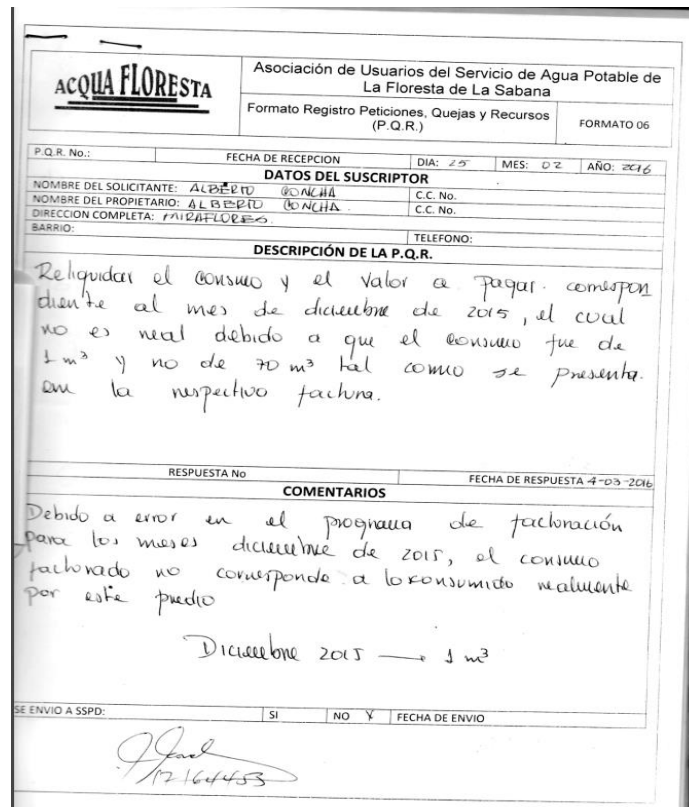 ACQUA FLORESTA
Asociación de Usuarios del Servicio de Agua Potable de
La Floresta de La Sabana
Formato Registro Peticiones, Quejas y Recursos
(P.Q.R.)
FORMATO 06
P.Q.R. No.: FECHA DE RECEPCION DIA: 25 MES: 02 AÑO: 2016
DATOS DEL SUSCRIPTOR
NOMBRE DEL SOLICITANTE: ALBERTO CONCHA C.C. No.
NOMBRE DEL PROPIETARIO: ALBERTO CONCHA. C.C. No.
DIRECCION COMPLETA: MIRAFLORES.
BARRIO: TELEFONO:
DESCRIPCIÓN DE LA P.Q.R.
Reliquidar el consumo y el valor a pagar. correspon
diente al mes de diciembre de 2015, el cual
no es real debido a que el consumo fue de
1 m³ y no de 70 m³ tal como se presenta.
em la respectivo factura.
RESPUESTA No FECHA DE RESPUESTA 4-03-2016
COMENTARIOS
Debido a error en el programa de facturación
para los meses diciembre de 2015, el consumo
facturado no corresponde a lo consumido realmente
por este predio
Diciembre 2015 → 1 m³
SE ENVIO A SSPD: SI NO X FECHA DE ENVIO
17164453